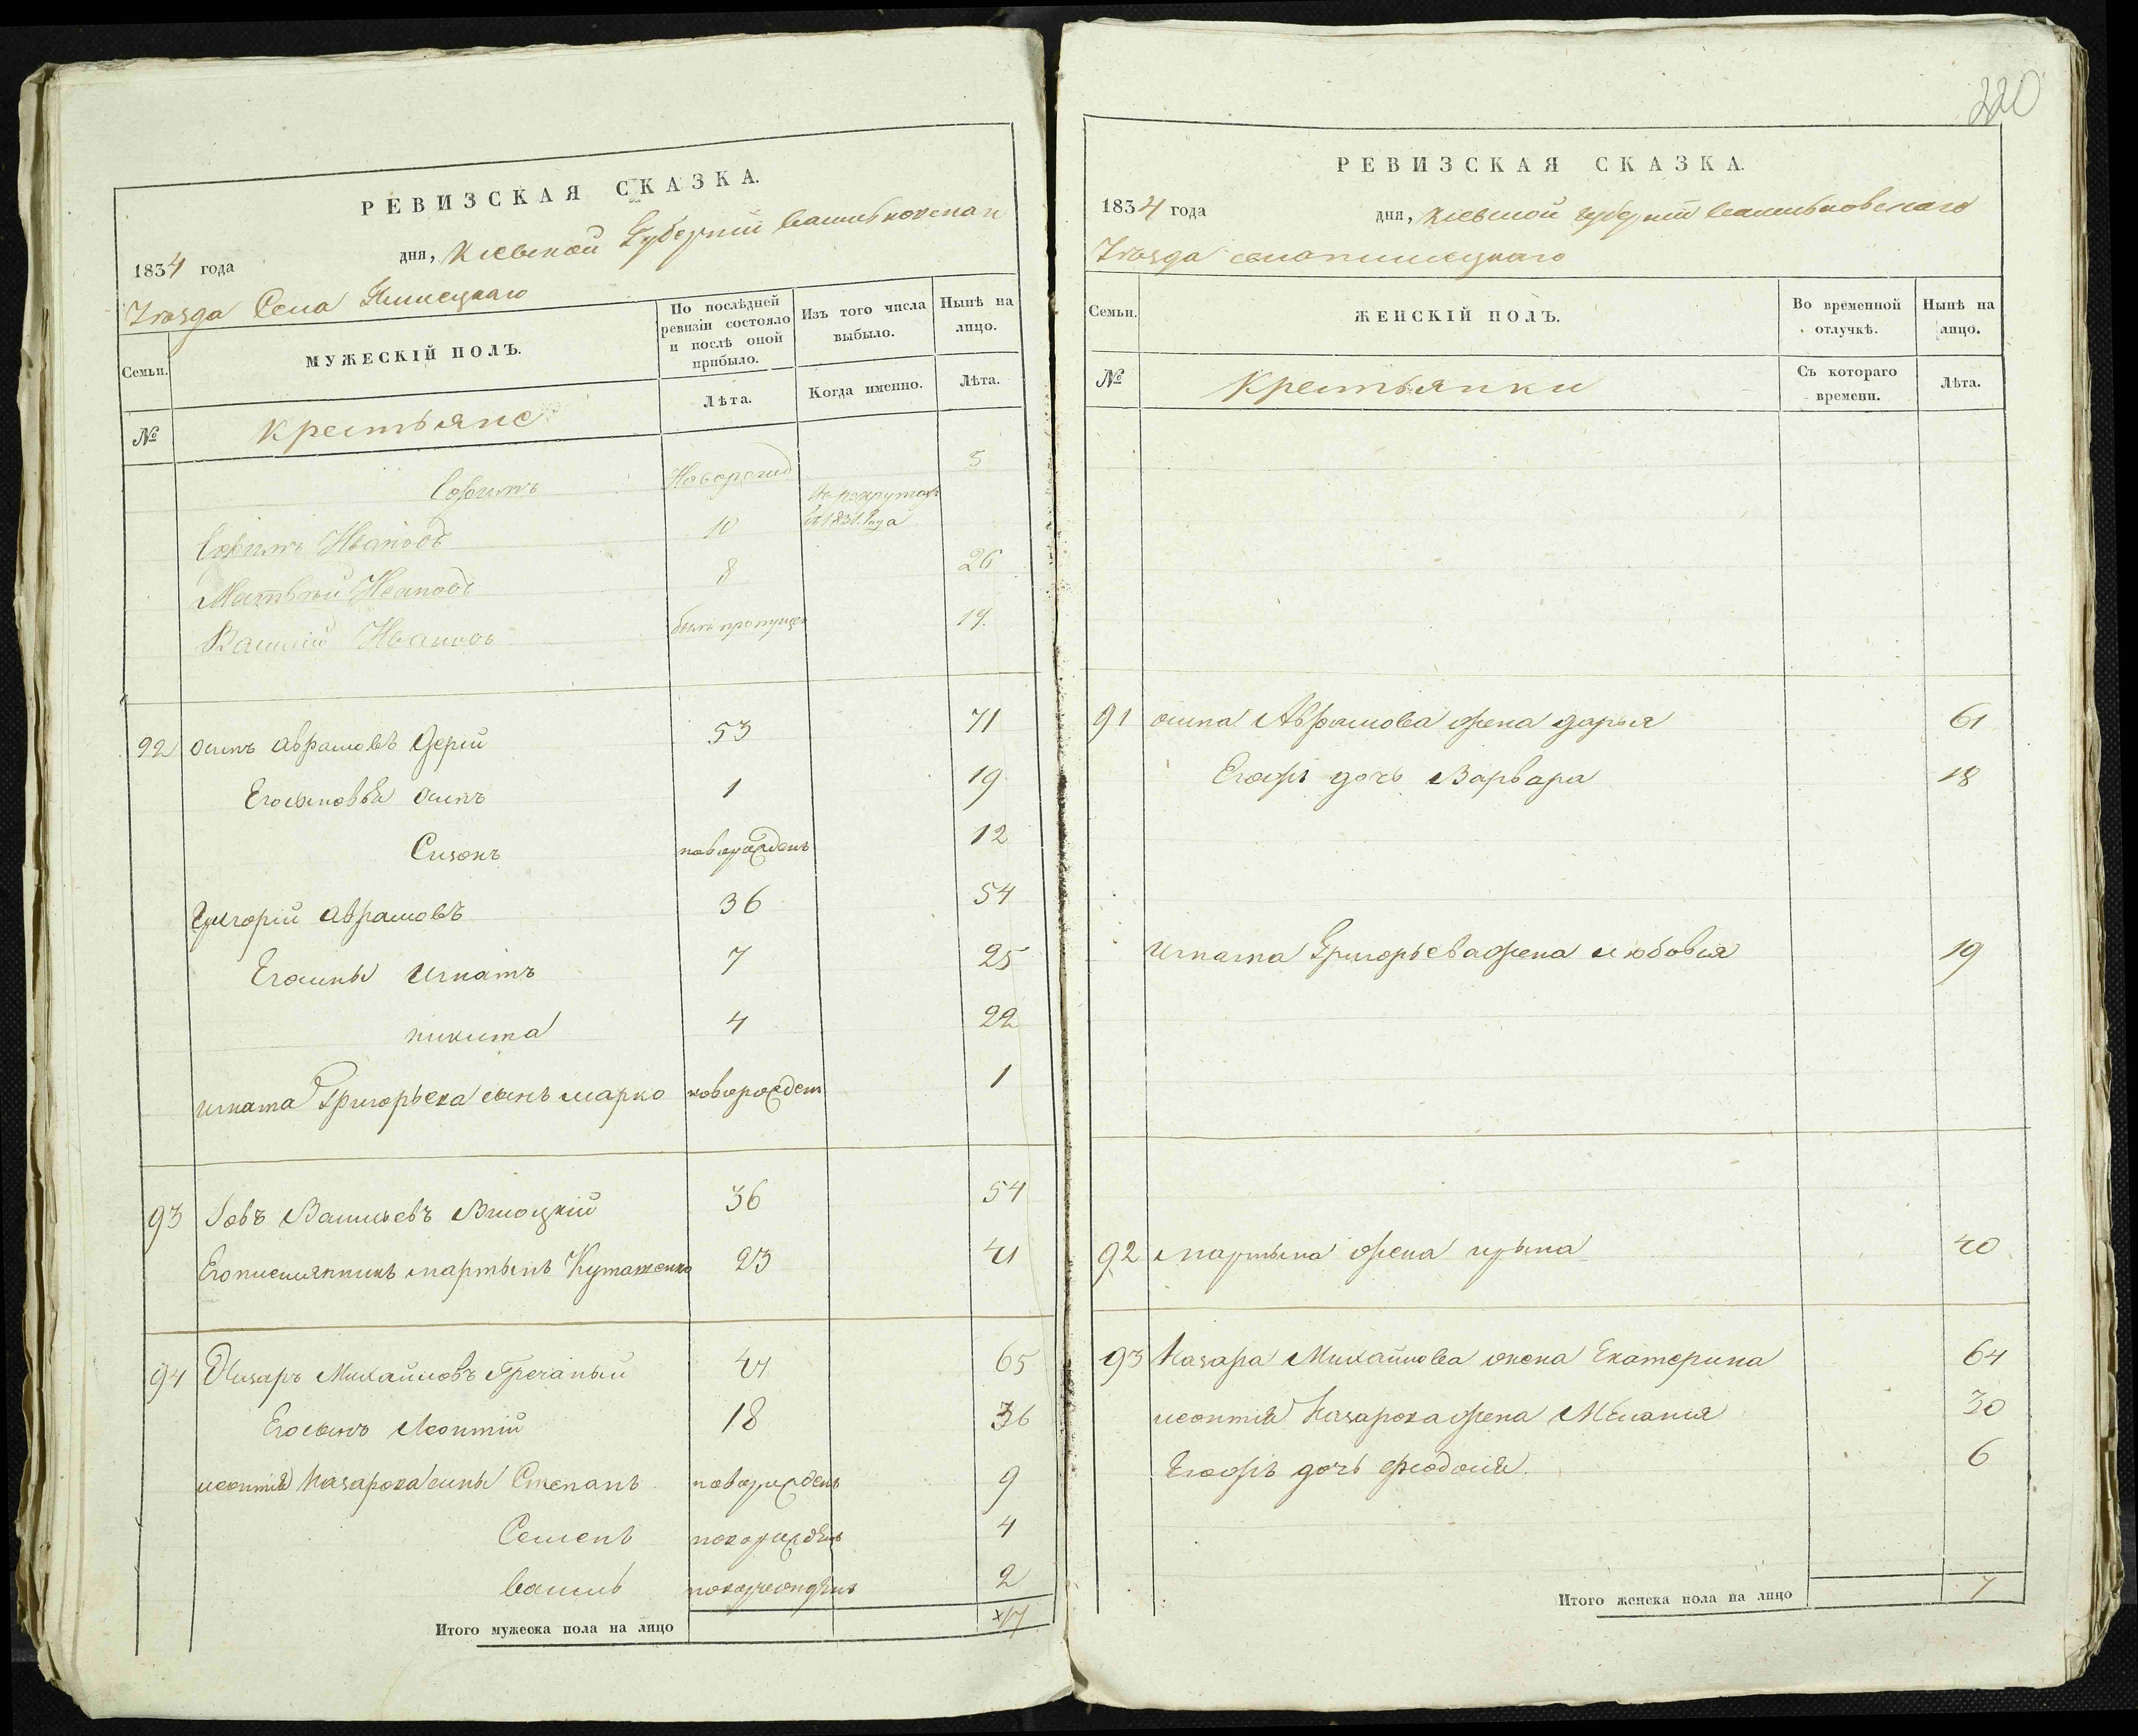 РЕВИЗСКАЯ СКАЗКА.
1834 года дня, Кіевской Губерніи Васильковскаго
Уѣзда Села
Семьи. МУЖЕСКІЙ ПОЛЪ. По послѣдней ревизіи состояло и послѣ оной прибыло. Изъ того числа выбыло. Нынѣ на лицо.
№ Крестьяне Лѣта. Когда именно. Лѣта.
Новорожд 5
Иванов 10 в рекрутах 1831. года
Матвѣй Ивановъ 8 26
Василій Ивановъ былъ пропущен 19.
92 осипъ аврамовъ 53 71
Его сыновья осипъ 1 19
Сизонъ новорожденъ 12
Григорій аврамовъ 36 54
Его сыны игнатъ 7 25
никита 4 22
игната Григорьева сынъ марко новорожден 1
93 Іовъ Васильевъ 36 54
Его племянникъ мартынъ 23 41
94 Назаръ Михайловъ Гречаный 47 65
Его сынъ Леонтій 18 36
леонтія Назарова сыны Степанъ новорожденъ 9
Семенъ новорожденъ 4
василь новорожденъ 2
Итого мужеска пола на лицо 17
220
РЕВИЗСКАЯ СКАЗКА.
1834 года дня, Кіевской губерніи васильковскаго
Уѣзда села
Семьи. ЖЕНСКІЙ ПОЛЪ. Во временной отлучкѣ. Нынѣ на лицо.
№ Крестьянки Съ котораго времени. Лѣта.
91 осипа Аврамова жена дарья 61
Егожъ дочь Варвара 18
игната Григорьева жена любовия 19
92 мартына жена 40
93 Назара Михайлова жена Екатерина 64
леонтія Назарова жена Меланія 30
Егожъ дочь феодосія. 6
Итого женска пола на лицо 7